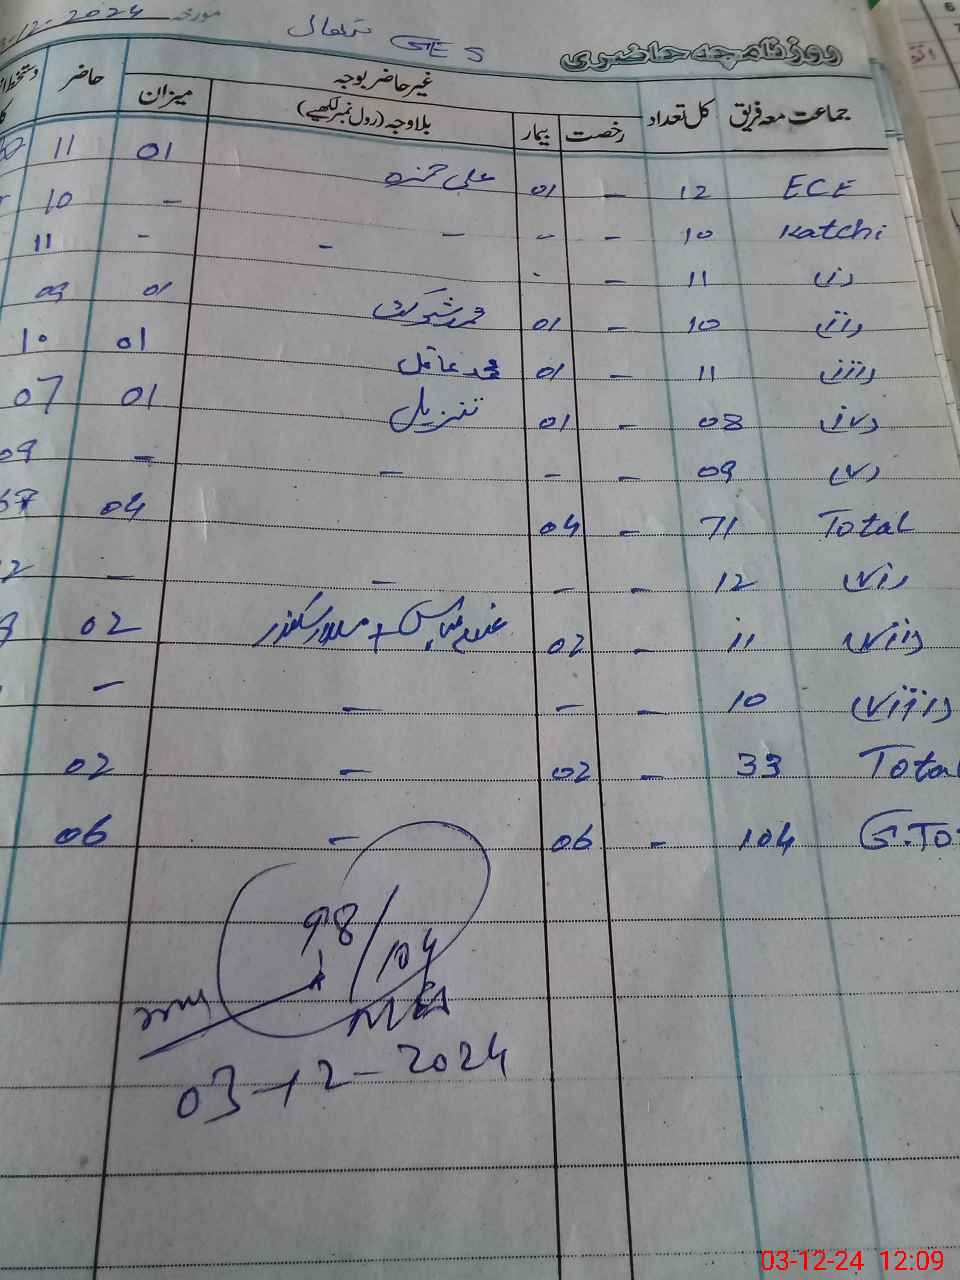 روزنامچہ حاضری GES مورخہ 3-12-2024
جماعت معہ فریق کل تعداد غیر حاضر بوجہ حاضر
رخصت بیمار بلاوجہ (رول نمبر لکھیے) میزان
ECE 12 - 01 علی حمزہ 01 11
Katchi 10 - - - - 10
i 11 - - - - 11
ii 10 - 01 محمد شوکت 01 09
iii 11 - 01 محمد عاقل 01 10
iv 08 - 01 تنزیل 01 07
v 09 - - - - 09
Total 71 - 04 04 67
vi 12 - - - -
vii 11 - 02 02
viii 10 - - - -
Total 33 - 02 - 02
G.To 104 - 06 - 06
98/104
03-12-2024
03-12-24 12:09